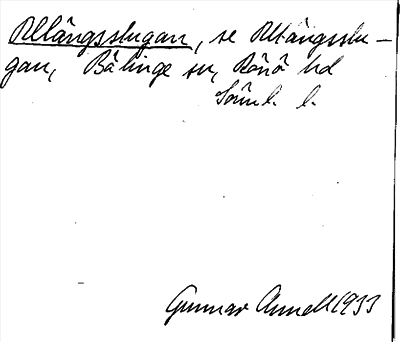 Ållångsstugan, se Ållångsstu-
gan, Bälinge sn, Rönö hd
Södml. l.
Gunnar Annell 1933